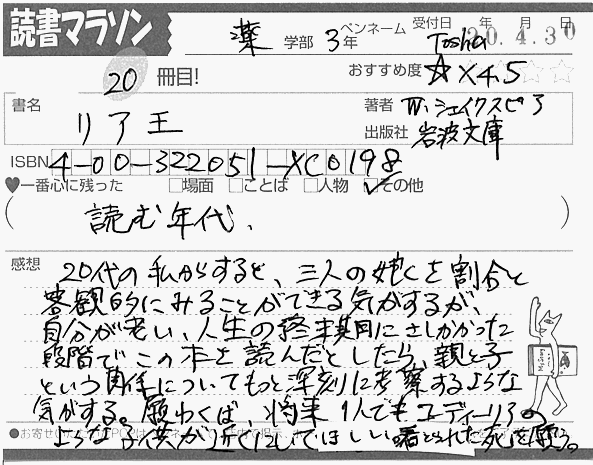 読書マラソン
薬 学部 3年 ペンネーム Tosha 受付日 年 月 日 20.4.30
20 冊目! おすすめ度 ☆×4.5
書名 リア王
著者 W.シェイクスピア
出版社 岩波文庫
ISBN 4-00-322051-X C0198
♥一番心に残った □場面 □ことば □人物 ☑その他
( 読む年代、 )
感想
20代の私からすると、三人の娘を割合と
客観的にみることができる気がするが、
自分が老い、人生の終末期にさしかかった
段階でこの本を読んだとしたら、親と子
という関係についてもっと深刻に考察するような
気がする。願わくば、将来1人でもコーディーリアの
ような子供が近くにいてほしい。看とられた死を願う。